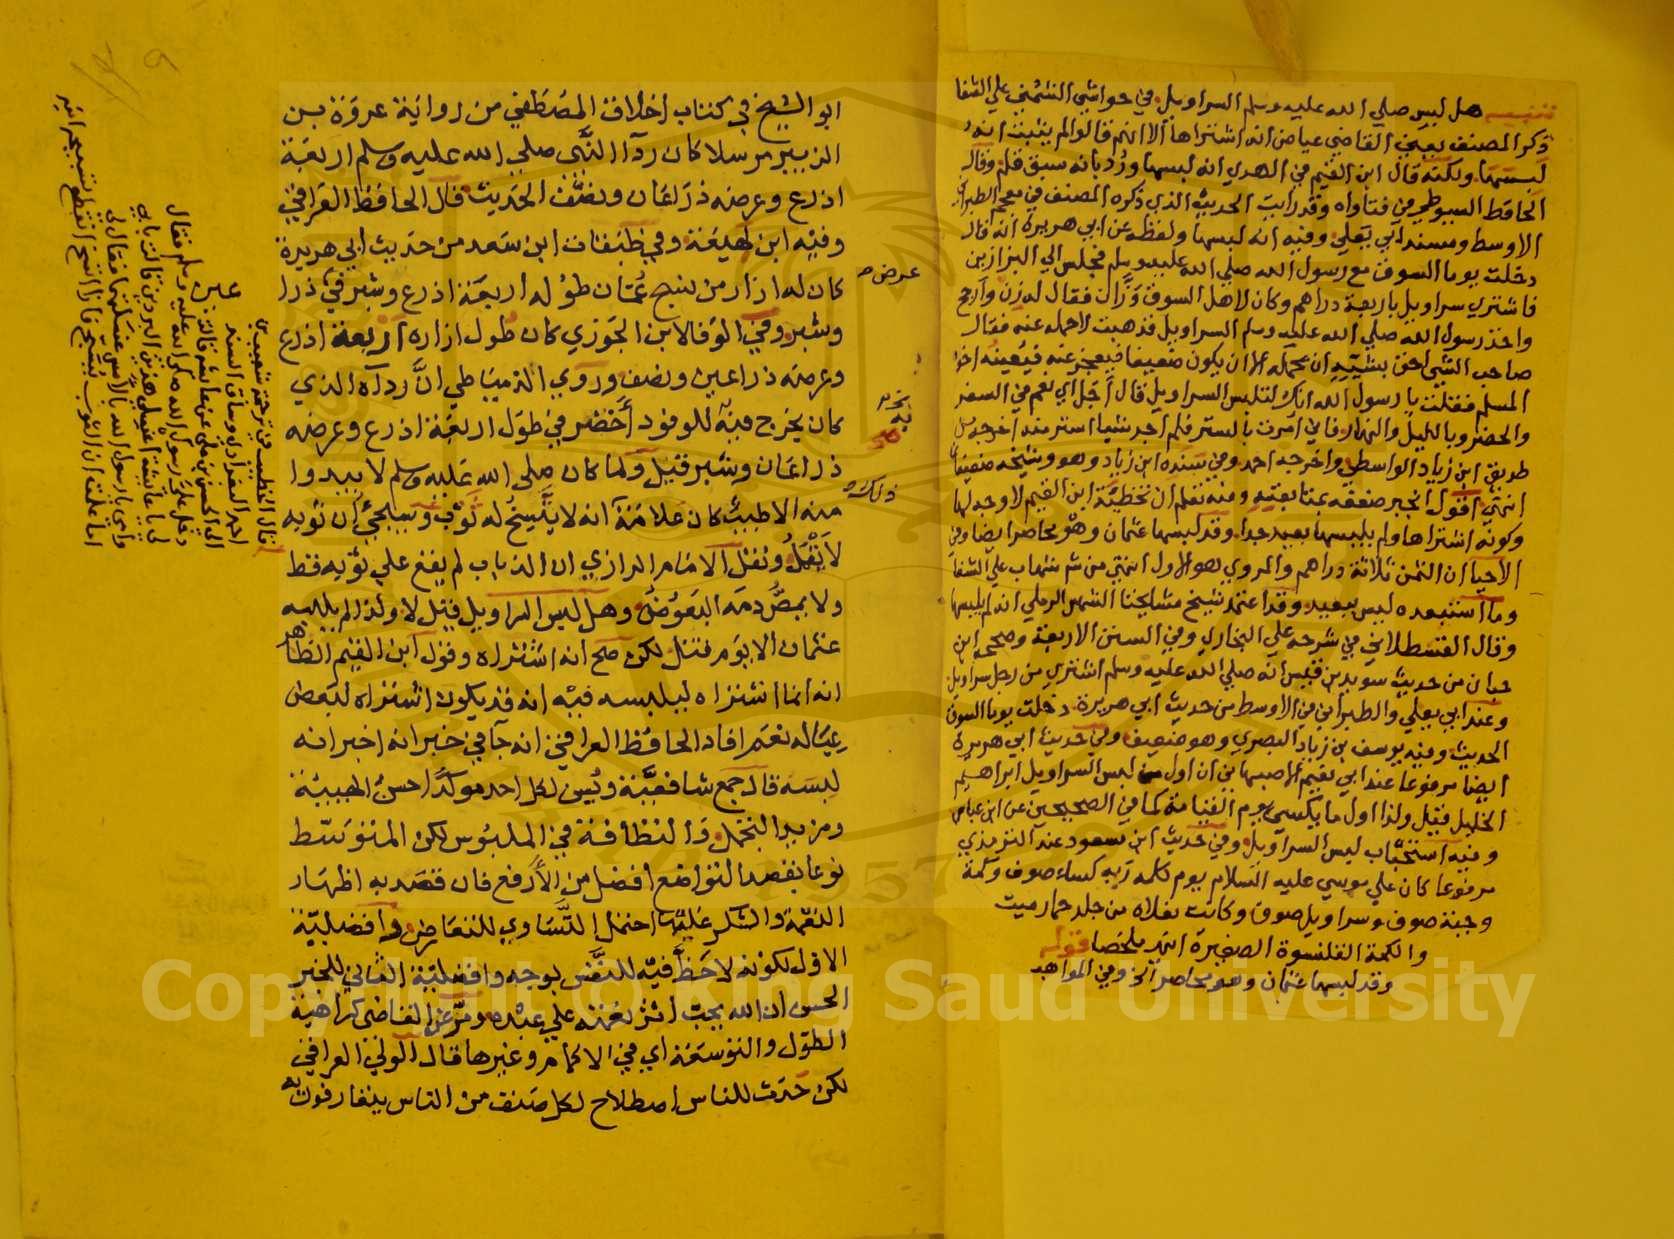 تنبيه هل لبس صلي الله عليه وسلم السراويل في حواشي الشمني علي الشفا
ذكر المصنف يعني القاضي عياض انه اشتراها الا انهم قالوا لم يثبت انه
لبسها ولكنه قال ابن القيم في الهدي انه لبسها ورد بانه سبق قلم وقال
الحافظ السيوطي في فتاواه وقد رايت الحديث الذي ذكره المصنف في معجم الطبراني
الاوسط ومسند ابي يعلي وفيه انه لبسها ولفظه عن ابي هريرة انه قال
دخلت يوما السوق مع رسول الله صلي الله عليه وسلم فجلس الي البزازين
فاشتري سراويل باربعة دراهم وكان لاهل السوق وزان فقال له زن وارجح
واخذ رسول الله صلي الله عليه وسلم السراويل فذهبت لاحمله عنه فقال
صاحب الشيء احق بشيئه ان يحمله الا ان يكون ضعيفا فيعجز عنه فيعينه اخوه
المسلم فقلت يا رسول الله انك لتلبس السراويل قال اجل اي نعم في السفر
والحضر وبالليل والنهار فاني امرت بالستر فلم اجد شيا استر منه اخرجه من
طريق ابن زياد الواسطي واخرجه احمد وفي سنده ابن زياد وهو وشيخه ضعيفان
انتهي اقول انجبر ضعفه بمتابعته ومنه تعلم ان تخطئة ابن القيم لا وجه لها
وكونه اشتراها ولم يلبسها بعيد جدا وقد لبسها عثمان وهو محاصر ايضا وفي
الاحيا ان الثمن ثلاثة دراهم والمروي هو الاول انتهي من ش شهاب علي الشفا
وما استبعده ليس ببعيد وقد اعتمد شيخ مشايخنا الشمس الرملي انه لم يلبسها
وقال القسطلاني في شرحه علي البخاري وفي السنن الاربعة وصححه ابن
حبان من حديث سويد بن قيس انه صلي الله عليه وسلم اشتري من رجل سراويل
وعند ابي يعلي والطبراني في الاوسط من حديث ابي هريرة دخلت يوما السوق
الحديث وفيه يوسف بن زياد البصري وهو ضعيف وفي حديث ابي هريرة
ايضا مرفوعا عند ابي نعيم الاصبهاني ان اول من لبس السراويل ابراهيم
الخليل فقيل ولذا اول ما يكسي يوم القيامة كما في الصحيحين عن ابن عباس
وفيه استحباب لبس السراويل وفي حديث ابن مسعود عند الترمذي
مرفوعا كان علي موسي عليه السلام يوم كلمه ربه كساء صوف وكمة
وجبة صوف وسراويل صوف وكانت نعلاه من جلد حمار ميت
والكمة القلنسوة الصغيرة انتهي ملخصا قوله
وقد لبسها عثمان وهو محاصر الخ وفي المواهب
ابو الشيخ في كتاب اخلاق المصطفي من رواية عروة بن
الزبير مرسلا كان ردآ النبي صلي الله عليه وسلم اربعة
اذرع وعرضه ذراعان ونصف الحديث قال الحافظ العراقي
وفيه ابن لهيعة وفي طبقات ابن سعد من حديث ابي هريرة
كان له ازار من نسج عمان طوله اربعة اذرع وشبر في ذراع
وشبر وفي الوفا لابن الجوزي كان طول ازاره اربعة اذرع
وعرضه ذراعين ونصف وروي الدمياطي ان رداه الذي
كان يخرج فيه للوفود أخضر في طول اربعة اذرع وعرضه
ذراعان وشبر قيل ولما كان صلي الله عليه وسلم لا يبدوا
منه الا طيب كان علامة آنه لا يتسخ له ثوب وسيجئ أن ثوبه
لا يقمل ونقل الامام الرازي ان الذباب لم يقع علي ثوبه قط
ولا يمص دمه البعوض وهل لبس السراويل قيل لا ولذا لم يلبسه
عثمان الا يوم قتل لكن صح انه اشتراه وقول ابن القيم الظاهر
انه انما اشتراه ليلبسه فيه انه قد يكون اشتراه لبعض
عياله نعم افاد الحافظ العراقي انه جآ في خبر انه اخبر انه
لبسه قال جمع شافعية ويسن لكل احد موكدا حسن الهيئة
ومزيد التجمل والنظافة في الملبوس لكن المتوسط
نوعا بقصد التواضع افضل من الأرفع فان قصد به اظهار
النعمة والشكر عليها احتمل التساوي للتعارض وافضلية
الاول لكونه لا حظ فيه للنفس بوجه وافضلية الثاني للخبر
الحسن ان الله يحب اثر نعمته علي عبده ومر عن القاضي كراهية
الطول والتوسعة اي في الاكمام وغيرها قال الولي العراقي
لكن حدث للناس اصطلاح لكل صنف من الناس يتعارفونه
عرض
ذلك
قال الخطيب في ترجمة شعيب بن
احمد البغدادي وساق السند
الي الحسن بن علي عن عائشة قالت
دخل علي رسول الله صلي الله عليه وسلم فقال
لي يا عائشة اغسلي هذين البردين قالت بابي
وامي يا رسول الله بالامس غسلتهما فقال لي
اما علمت ان الثوب يسبح فاذا اتسخ انقطع تسبيحه
Copyright © King Saud University
1957